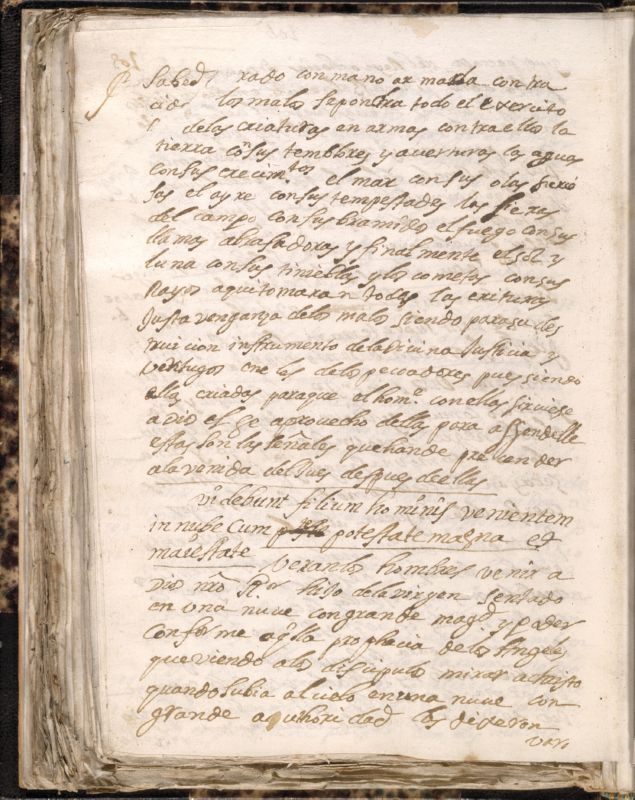 Sabed rado con mano armada contra
los malos se pondra todo el exercito
delas criaturas en armas contra ellos la
tierra cõ sus temblores y averturas las aguas
con sus crecim.tos el mar con sus olas
el ayre con sus tempestades las fieras
del campo con sus bramidos el fuego con sus
llamas abrasadoras y finalmente el sol y
luna con sus tinieblas y los cometas con sus
Rayos aqui tomaran todas las crituras
Justa venganza de los malos siendo para su des
truicion instrumento dela Divina Justicia y
verdugos de los peccadores pues siendo
ellas criadas para que el hom.e con ellas sirviese
a Dios el se aprovecho dellas para offendelle
estas son las señales que han de preceder
ala venida del Jues despues de ellas
videbunt filium hominis venientem
in nube cum potestate magna et
maiestate Veran los hombres venir a
Dios nrõ S.or hijo dela virgen sentado
en una nuve con grande mag.d y poder
conforme aq.lla prophecia de los Angeles
que viendo a los discipulos mirar a Christo
quando subia al cielo en una nuve con
grande authoridad les dixeron